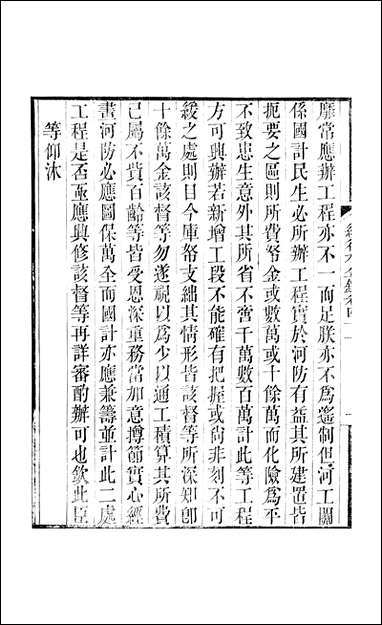 靡常應辦工程亦不一而足朕亦不為遙制但河工關
係國計民生必所辦工程實於河防有益其所建置皆
扼要之區則所費帑金或數萬或十餘萬而化險為平
不致患生意外其所省不啻千萬數百萬計此等工程
方可興辦若新增工段不能確有把握或尙非刻不可
緩之處則目今庫帑支絀其情形皆該督等所深知卽
十餘萬金該督等勿遂視以為少以通工積算其所費
已屬不貲百齡等皆受恩深重務當加意撙節實心經
畫河防必應圖保萬全而國計亦應兼籌並計此二處
工程是否亟應興修該督等再詳審酌辦可也欽此臣
等仰沐